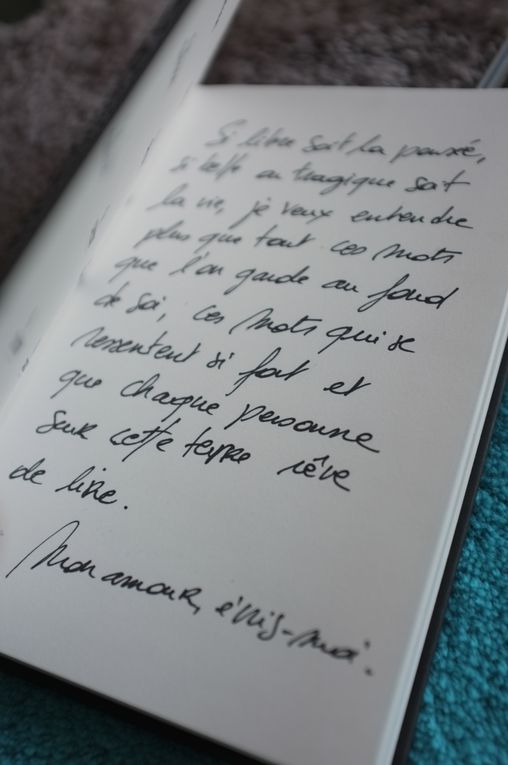 Si libre soit la pensée,
si belle ou tragique soit
la vie, je veux entendre
plus que tout ces mots
que l'on garde au fond
de soi, ces mots qui se
ressentent si fort et
que chaque personne
sur cette terre rêve
de lire.
Mon amour, écris-moi.